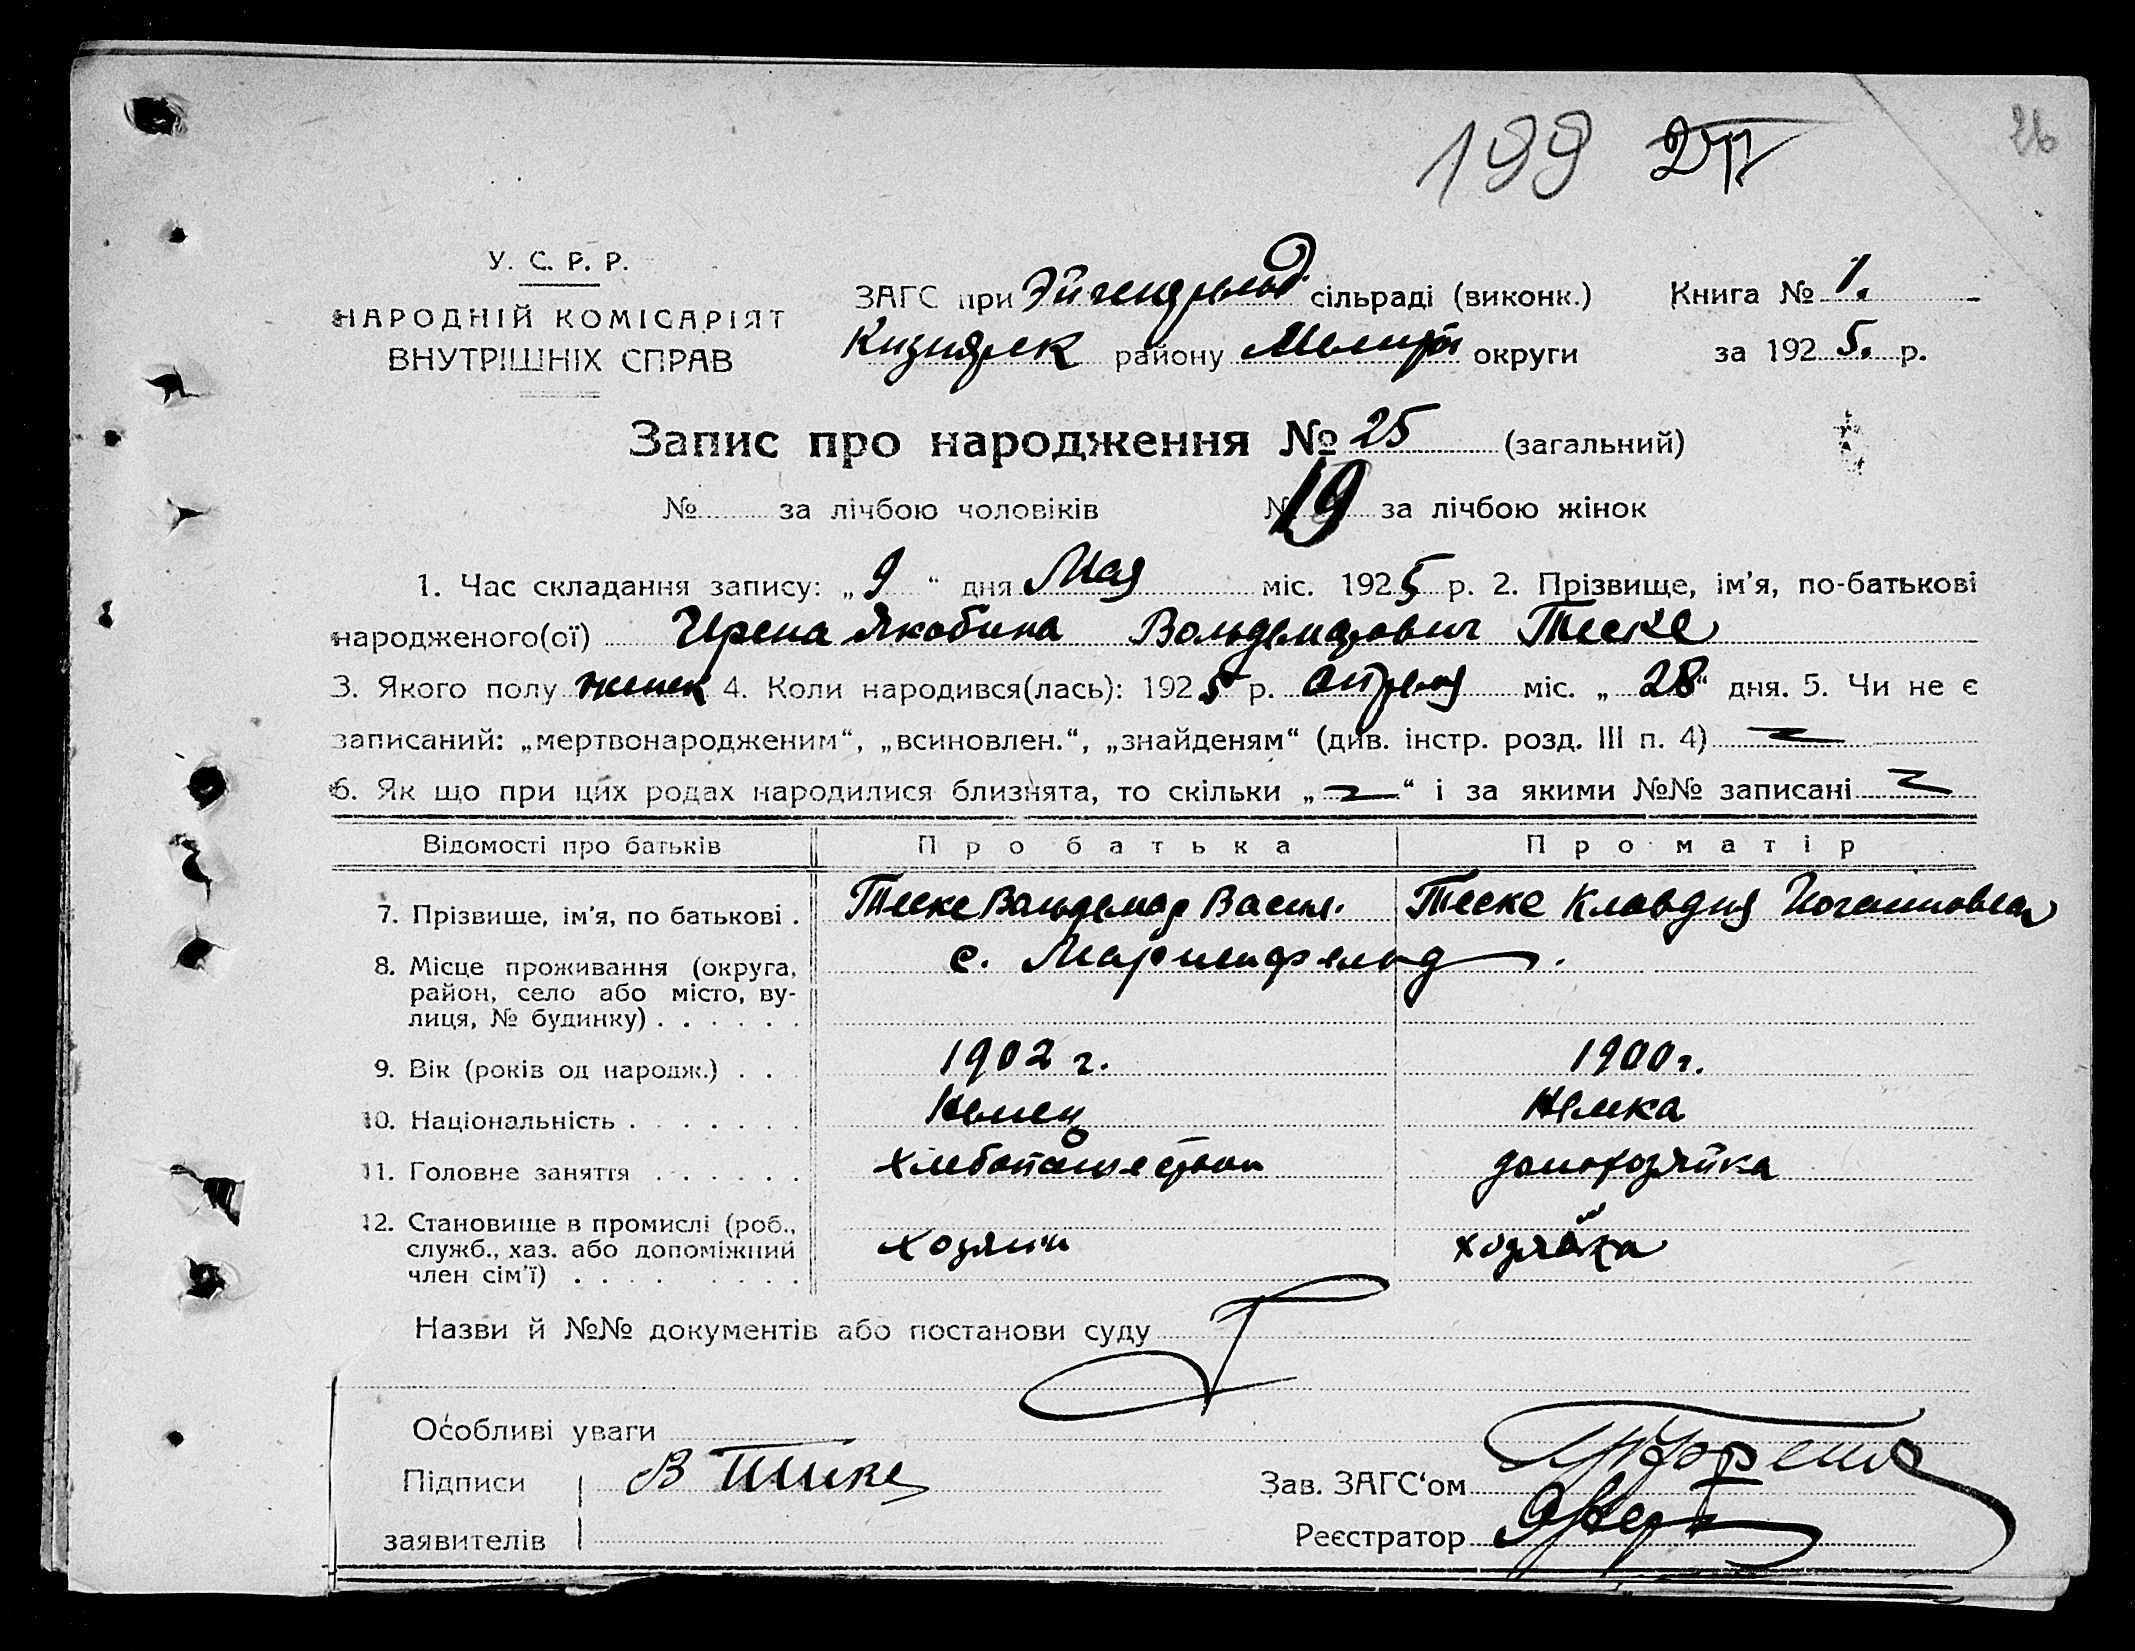 199
26
У. С. Р. Р.
НАРОДНІЙ КОМІСАРІЯТ
ВНУТРІШНІХ СПРАВ
ЗАГС при Эйгенфельд сільраді (виконк.) Книга № 1.
Кизиярск району Мелит округи за 1925. р.
Запис про народження № 25 (загальний)
№ за лічбою чоловіків № 19 за лічбою жінок
1. Час складання запису: „9“ дня Мая міс. 1925 р. 2. Прізвище, ім'я, по-батькові
народженого(ої) Ирена Якобина Вольдемарович Теске
3. Якого полу женск 4. Коли народився(лась): 1925 р. апреля міс. „28“ дня. 5. Чи не є
записаний: „мертвонародженим“, „всиновлен.“, „знайденям“ (див. інстр. розд. III п. 4)
6. Як що при цих родах народилися близнята, то скільки „ “ і за якими №№ записані
Відомості про батьків Про батька Про матір
7. Прізвище, ім'я, по батькові . Теске Вольдемар Васил. Теске Клавдия Иогановна
8. Місце проживання (округа, с. Мариенфельд.
район, село або місто, ву-
лиця, № будинку) . . . . . .
9. Вік (років од народж.) . . 1902 г. 1900 г.
10. Національність . . . . . . . Немец Немка
11. Головне заняття . . . . . . хлебопашеством домохозяйка
12. Становище в промислі (роб.,
служб., хаз. або допоміжний хозяин хозяйка
член сім'ї) . . . . . . . .
Назви й №№ документів або постанови суду
Особливі уваги
Підписи В Теске Зав. ЗАГС‘ом
заявителів Реєстратор